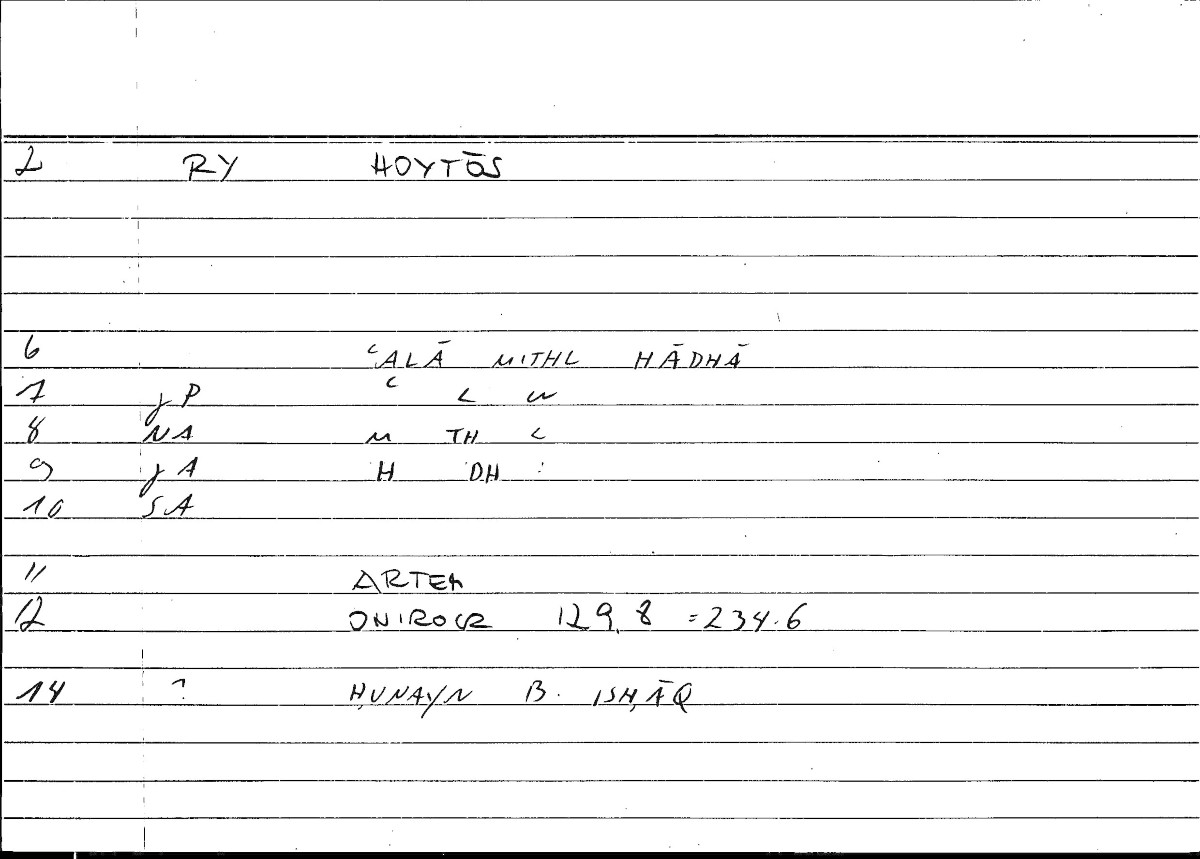 2 RY HOYTŌS
6 ʿALĀ MITHL HĀDHĀ
7 jP ʿ L W
8 NA M TH L
9 jA H DH :
10 SA
11 ARTEM
12 ONIROCR 129,8 =234.6
14 ? ḤUNAYN B. ISḤĀQ